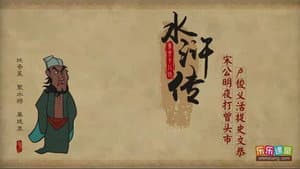 水浒传
宋公明夜打曾头市
卢俊义活捉史文恭
地奇星
乐乐课堂
leleketang.com